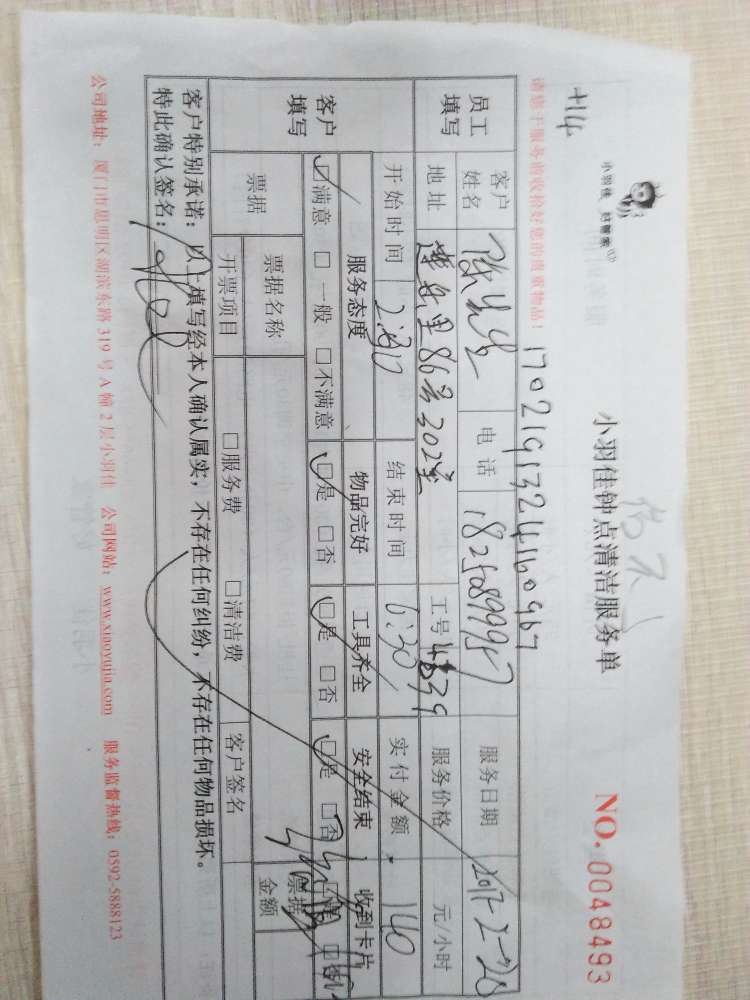 小羽佳 好管家
小羽佳钟点清洁服务单
NO. 0048493
请您于服务前收拾好您的贵重物品!
员工填写
客户姓名
电话
服务日期 2017-2-20
地址 莲岳里86号302室
工号
服务价格 元/小时
开始时间
结束时间 6:30
实付金额 140
客户填写
服务态度 物品完好 工具齐全 安全结束 收到卡片
□满意 □一般 □不满意 □是 □否 □是 □否 □是 □否
票据
票据名称
票据金额
开票项目 □服务费 □清洁费 客户签名
客户特别承诺:以上填写经本人确认属实,不存在任何纠纷,不存在任何物品损坏。
特此确认签名:
公司地址: 厦门市思明区湖滨东路 319 号 A 幢 2 层小羽佳 公司网站: www.xiaoyujia.com 服务监督热线: 0592-5888123